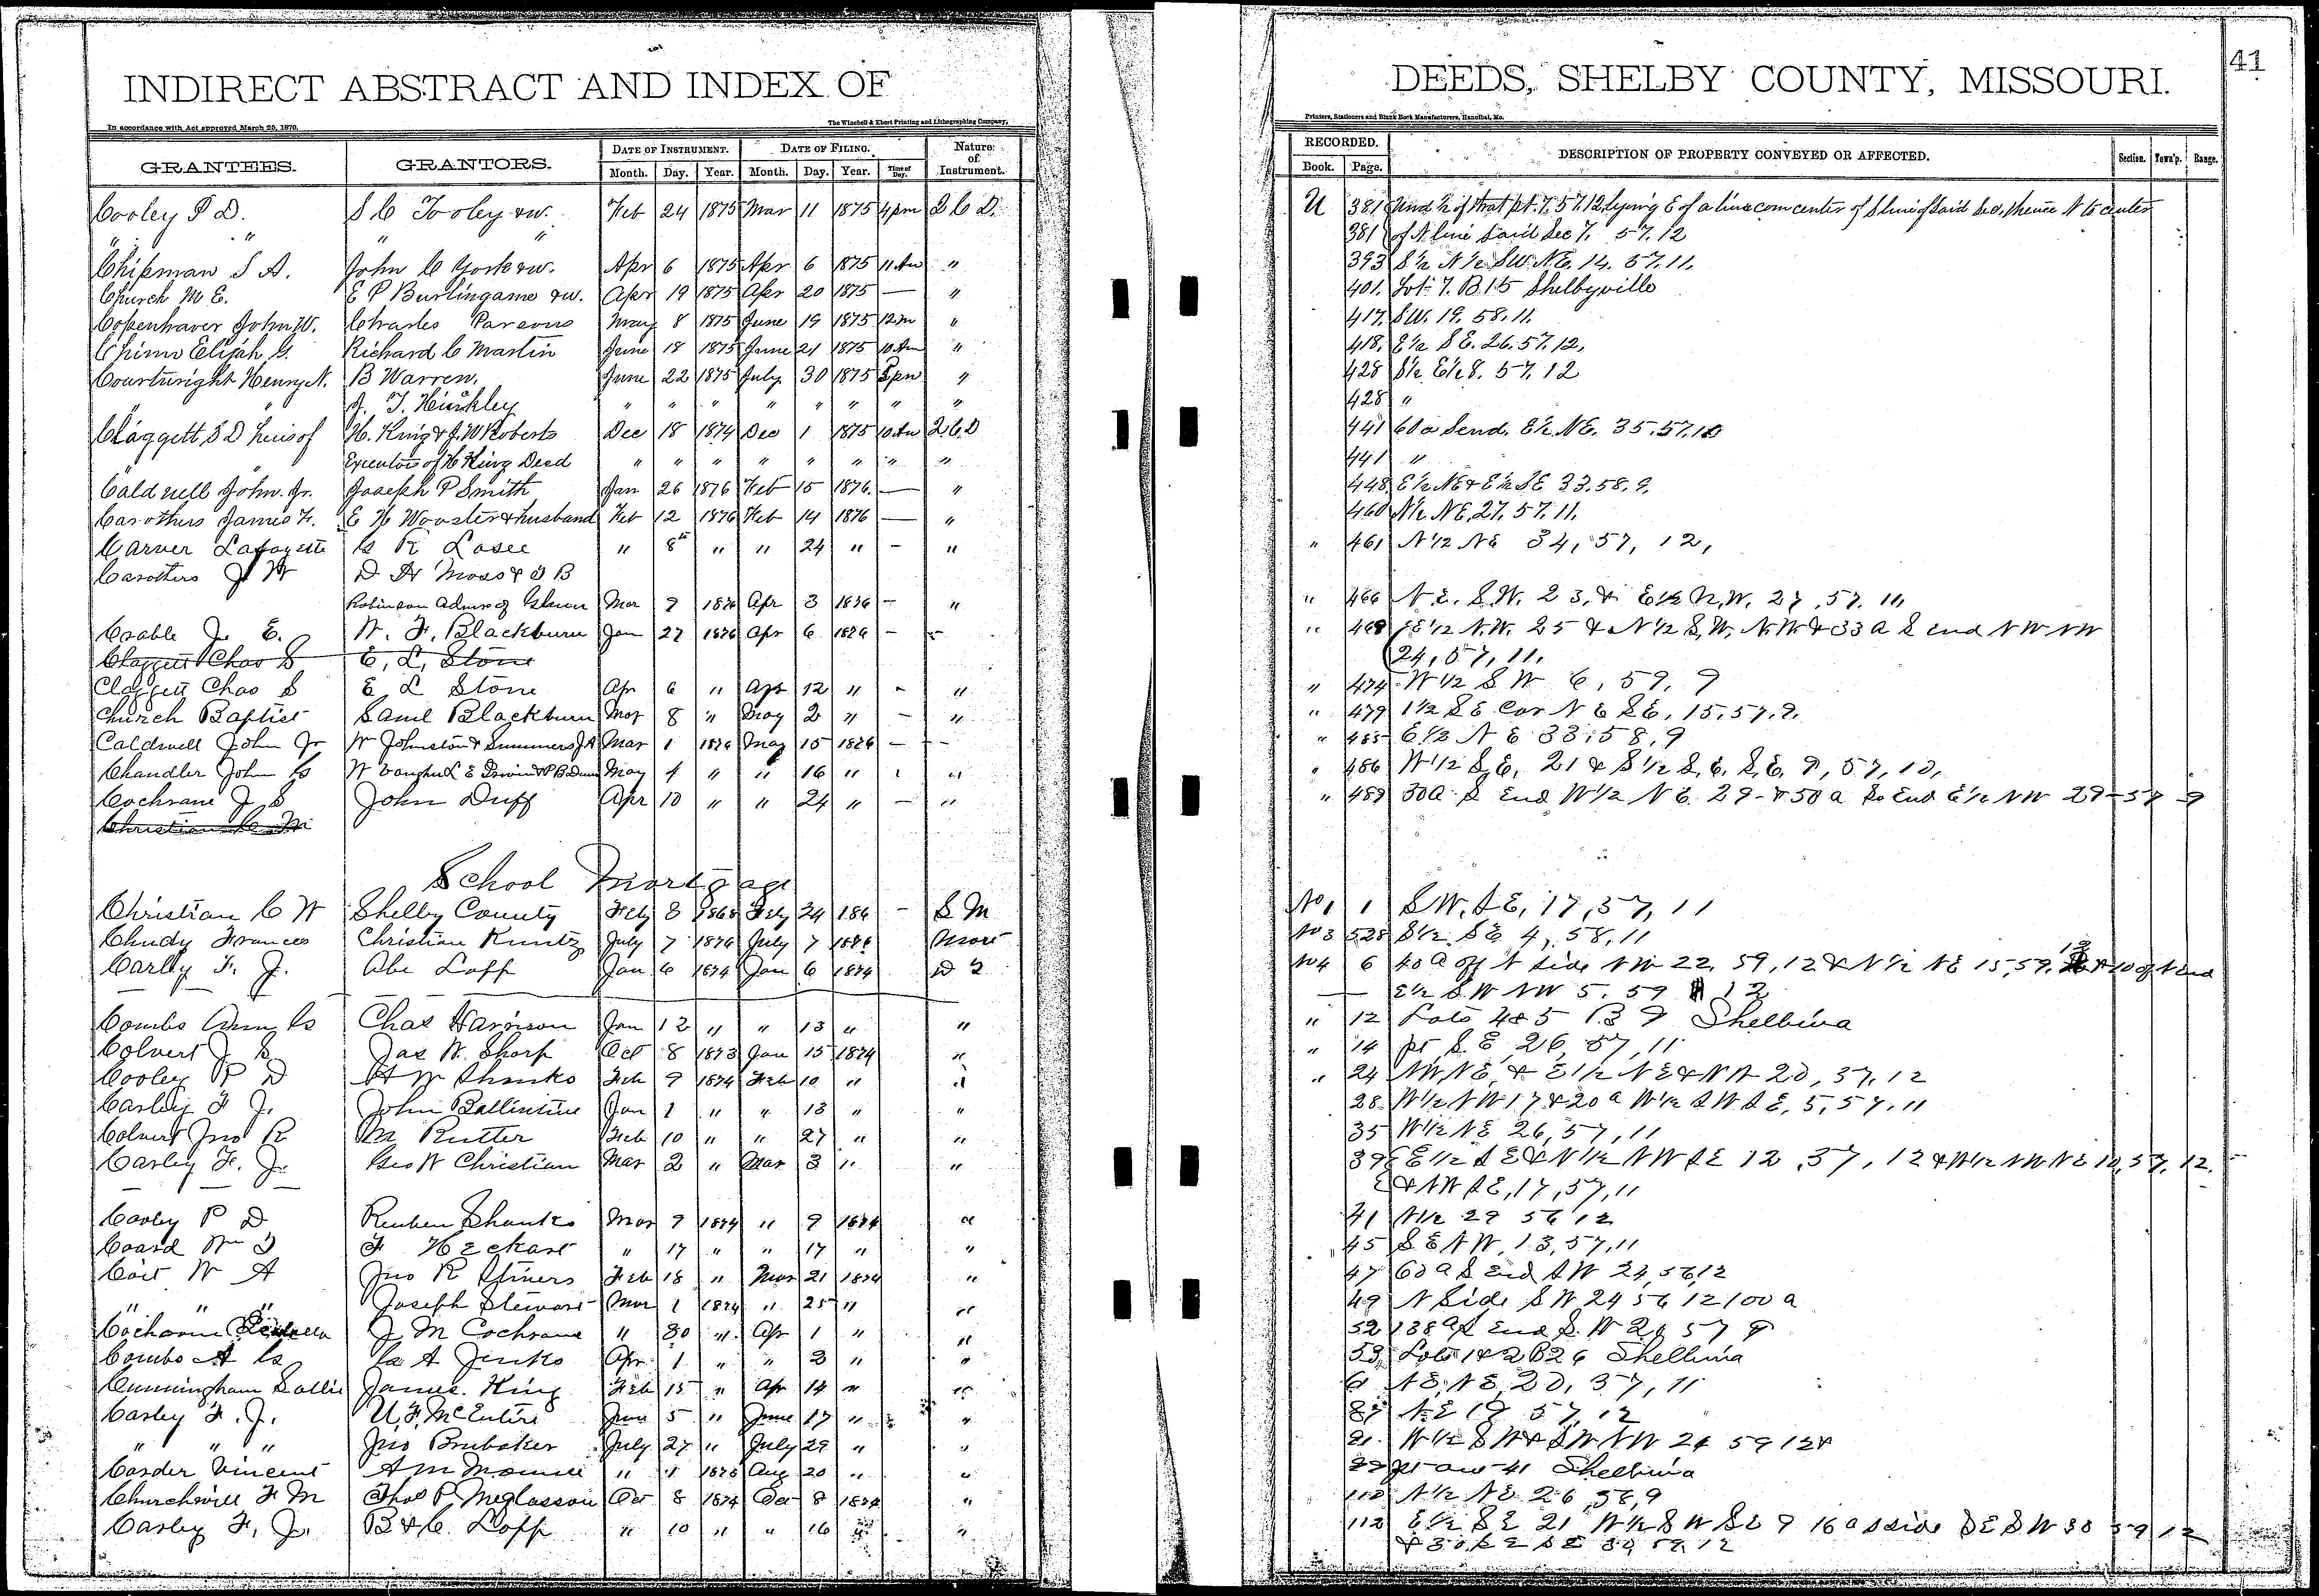 INDIRECT ABSTRACT AND INDEX OF DEEDS, SHELBY COUNTY, MISSOURI. 41
In accordance with Act approved March 25, 1870. The Winchell & Ebert Printing and Lithographing Company, Printers, Stationers and Blank Book Manufacturers, Hannibal, Mo.
GRANTEES. GRANTORS. DATE OF INSTRUMENT. DATE OF FILING. Nature of Instrument. RECORDED. DESCRIPTION OF PROPERTY CONVEYED OR AFFECTED. Section. Town'p. Range.
Month. Day. Year. Month. Day. Year. Time of Day. Book. Page.
Cooley P D. S C Tooley & w. Feb 24 1875 Mar 11 1875 4 pm 2 C D. U 381 Und ½ of that pt. 7. 57. 12 lying E of a line com center of S line of said Sec, thence N to center
" " " " 381 of N line said Sec 7. 57. 12
Chipman S A. John C York & w. Apr 6 1875 Apr 6 1875 11 Am " 393 S½ N½ SW. NE. 14. 57. 11.
Church M E. E P Burlingame & w. Apr 19 1875 Apr 20 1875 — " 401. Lot 7. B 15 Shelbyville
Copenhaver John W. Charles Parsons May 8 1875 June 19 1875 12 m " 417. SW. 19. 58. 11.
Chinn Elijah G. Richard C Martin June 18 1875 June 21 1875 10 Am " 418. E½ SE. 26. 57. 12.
Courtwright Henry N. B Warren. June 22 1875 July 30 1875 5 pm " 428 S½ E½ 8. 57. 12
" " J. T. Hinkley " " " " " " " " 428 "
Claggett S D heirs of H. King & J. W Roberts Dec 18 1874 Dec 1 1875 10 Am 2 C. D 441 60 a S end. E½ NE. 35. 57. 10
Executors of H King Decd " " " " " " " " 441 "
Caldwell John. Jr. Joseph P Smith Jan 26 1876 Feb 15 1876. — " 448 E½ NE & E½ SE 33. 58. 9.
Carothers James F. E H Wooster & husband Feb 12 1876 Feb 14 1876 — " 460 N½ NE, 27. 57. 11.
Carver Lafayette C K Lasee " 8th " " 24 " — " " 461 N½ NE 34, 57, 12,
Carothers J W D H Moss & J B
Robinson Admr of Mar 9 1876 Apr 3 1876 — " " 466 N. E. S. W. 23. & E½ N. W. 27, 57. 11,
Crable J. E. W. F. Blackburn Jan 27 1876 Apr 6 1876 — " " 469 E½ N. W. 25 & N½ S. W. N. W. & 33 a S end N W N W
Claggett Chas S E. L. Stone 24, 57, 11.
Claggett Chas S E L Stone Apr 6 " Apr 12 " — " " 474 W½ S W 6, 59, 9
Church Baptist Saml Blackburn Mar 8 " May 2 " — " " 479 1½ S E Cor N E SE, 15, 57, 9.
Caldwell John Jr W Johnston & Summers J A Mar 1 1876 May 15 1876 — " " 485 E½ N E 33, 58, 9
Chandler John C W Vaughn L E May 4 " " 16 " " " 486 W½ S. E. 21 & S½ S. E. S. E. 9, 57, 10,
Cochrane J S John Duff Apr 10 " " 24 " — " " 489 30 a S End W½ N E 29 & 50 a So End E½ NW 29-57-9
Christian C M
School Mortgage
Christian C W Shelby County Feby 8 1868 Feby 24 186 — S M No 1 1 S W, S E, 17, 57, 11
Chudy Frances Christian Kuntz July 7 1876 July 7 1876 Mort No 3 528 S½ SE 4, 58, 11
Carley F. J. Abe Lapp Jan 6 1874 Jan 6 1874 D 2 No 4 6 40 a off N side NW 22, 59, 12 & N½ NE 15, 59, 12 & 10 of N End
E½ S W N W 5. 59 12
Combs Ann C Chas Harrison Jan 12 " " 13 " " " 12 Lots 4 & 5 B 9 Shelbina
Colvert J S Jas W. Sharp Oct 8 1873 Jan 15 1874 " " 14 pt S. E, 26, 57, 11
Cooley P D H W Shanks Feb 9 1874 Feb 10 " " " 24 NW, NE, & E½ NE & N W 20, 57, 12
Carley F J. John Ballintine Jan 1 " " 13 " " 28 W½ NW 17 & 20 a W½ S W S E, 5, 57, 11
Colvert Jno R M Rutter Feb 10 " " 27 " " 35 W½ NE 26, 57, 11
Carley F. J. Geo W Christian Mar 2 " Mar 3 " " 39 E½ S E & N½ NW SE 12, 57, 12 & W½ NW NE 12, 57, 12.
& NW SE, 17, 57, 11
Cooley P D Reuben Shanks Mar 9 1874 " 9 1874 " 41 N½ 29 56 12
Coard Wm J F Heckart " 17 " " 17 " " 45 S E N W, 13, 57, 11
Coit W A Jno R Stiners Feb 18 " Mar 21 1874 " 47 60 a S End S W 24, 56, 12
" " " Joseph Stewart Mar 1 1874 " 25 " " 49 N Side S W 24 56 12 100 a
J M Cochrane " 30 " Apr 1 " " 52 138 a S End S. W 57 9
Combs A C A Jenks Apr 1 " " 3 " " 53 Lots 1 & 2 B 26 Shelbina
Cunningham Sallie James King Feb 15 " Apr 14 " " 61 N E, N E, 20, 57, 11
Carley F. J. U. F. McEntire Jun 5 " June 17 " " 87 N. E 19 57, 12
" " " Jno Brubaker July 27 " July 29 " " 91 W½ S W & S W N W 24 59 12 &
Corder Vincent A M " 1 1873 Aug 20 " " 41 Shelbina
Churchwill F M Thos P. McGlasson Oct 8 1874 Oct 8 1874 " 112 N½ NE 26, 58, 9
Carley F. J. B & C. Lopp " 10 " " 16 " " 112 E½ S E 21 W½ S W S E 9 16 a S side S E S W 30 59 12